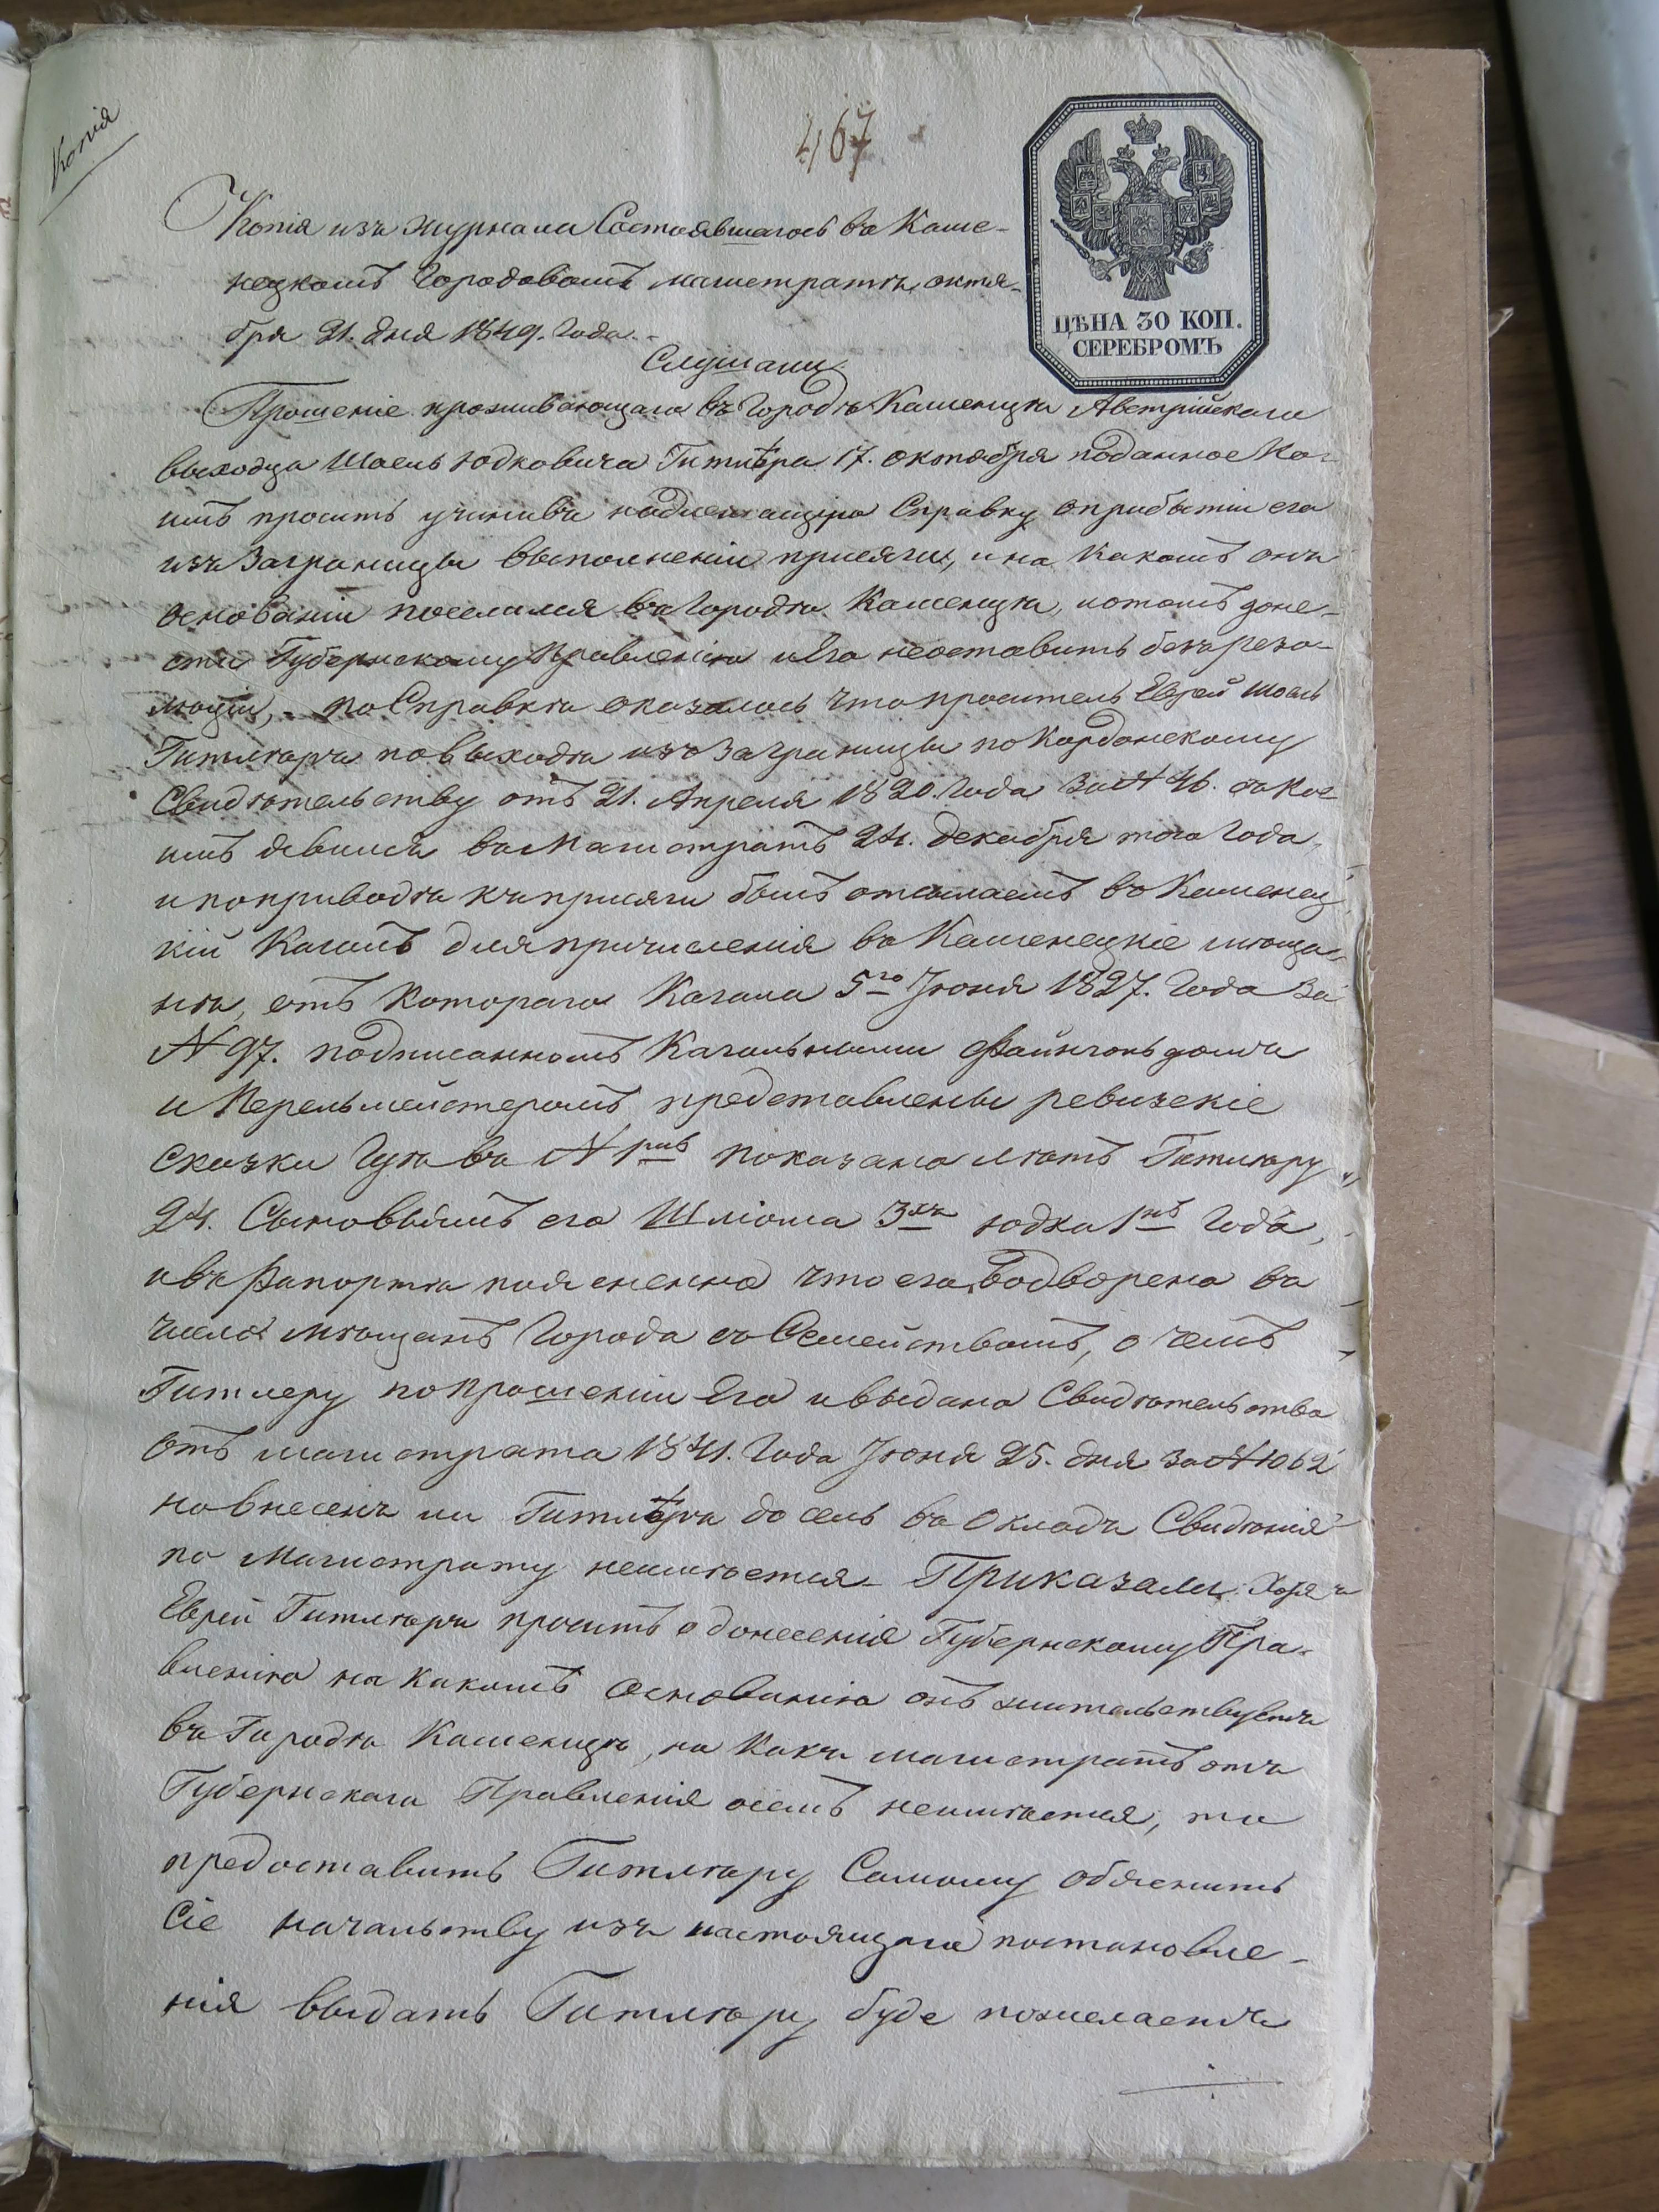 Копія
467
ЦѢНА 30 КОП.
СЕРЕБРОМЪ
Копія изъ журнала Состоявшагось въ Каме-
нецкомъ Городовомъ магистратѣ, октя-
бря 21. дня 1849. Года.-
Слушали
Прошеніе проживающаго въ Городѣ Каменцѣ Австрійскаго
выходца Шоель Юдковича Гитлѣра 17. октября поданное Ко-
имъ проситъ учинивъ надлежащую Справку о прибытіи его
изъ Заграницы выполненіи присяги, и на какомъ онъ
основаніи поселился въ Городѣ Каменцѣ, и отомъ доне-
сти Губернскому Правленію и Его неоставить безъ резо-
люціи, - по Справкѣ оказалось что проситель Еврей Шоель
Гитлѣръ по выходѣ изъ Заграницы по Кордонскому
Свидѣтельству отъ 21. Апреля 1820. Года За N 46. съ Ко-
имъ явился въ Магистратъ 24. декабря того Года,
и по приводѣ къ присяги былъ отсылаемъ въ Каменец-
кій Кагалъ для причисленія въ Каменецкіе мѣща-
нѣ, отъ Котораго Кагала 5го Іюня 1827. Года За
N 97. подписанномъ Кагальными Файнгольдомъ
и Перельмейстеромъ представлены ревизскіе
Сказки Гдѣ въ N 1мъ показано лѣтъ Гитлѣру
24. Сыновьямъ его Шліома 3хъ Юдка 1мъ Года,
и въ Рапортѣ поясненно что его водворено въ
число мѣщанъ Города со Семействомъ, о чемъ
Гитлеру по Прошеніи Его и выдано Свидѣтельство
Отъ магистрата 1841. Года Іюня 25. дня За N 1062
но внесенъ ли Гитлѣръ до сель въ Окладъ Свидѣнія
по Магистрату неимѣется - Приказали: Хотя
Еврей Гитлѣръ проситъ о донесенія Губернскому Пра-
вленію на какомъ Основанію онъ жительствуетъ
въ Городѣ Каменцѣ, но Какъ магистратъ отъ
Губернскаго Правленія осемъ неимѣется, то
предоставить Гитлѣру Самому обяснить
Сіе начальству изъ настоящаго постановле-
нія выдать Гитлѣру буде пожелаетъ